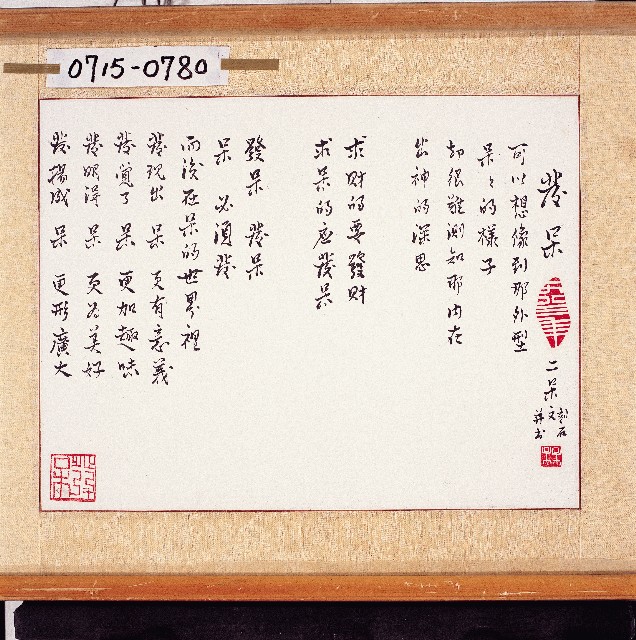 0715-0780
發呆
二呆文
並書
可以想像到那外型
呆呆的樣子
却很難測知那内在
出神的深思
求財的要發財
求呆的應發呆
發呆 發呆
呆 必須發
而後在呆的世界裡
發現出 呆 更有意義
發覺了 呆 更加趣味
發明得 呆 更為美好
發揚成 呆 更形廣大